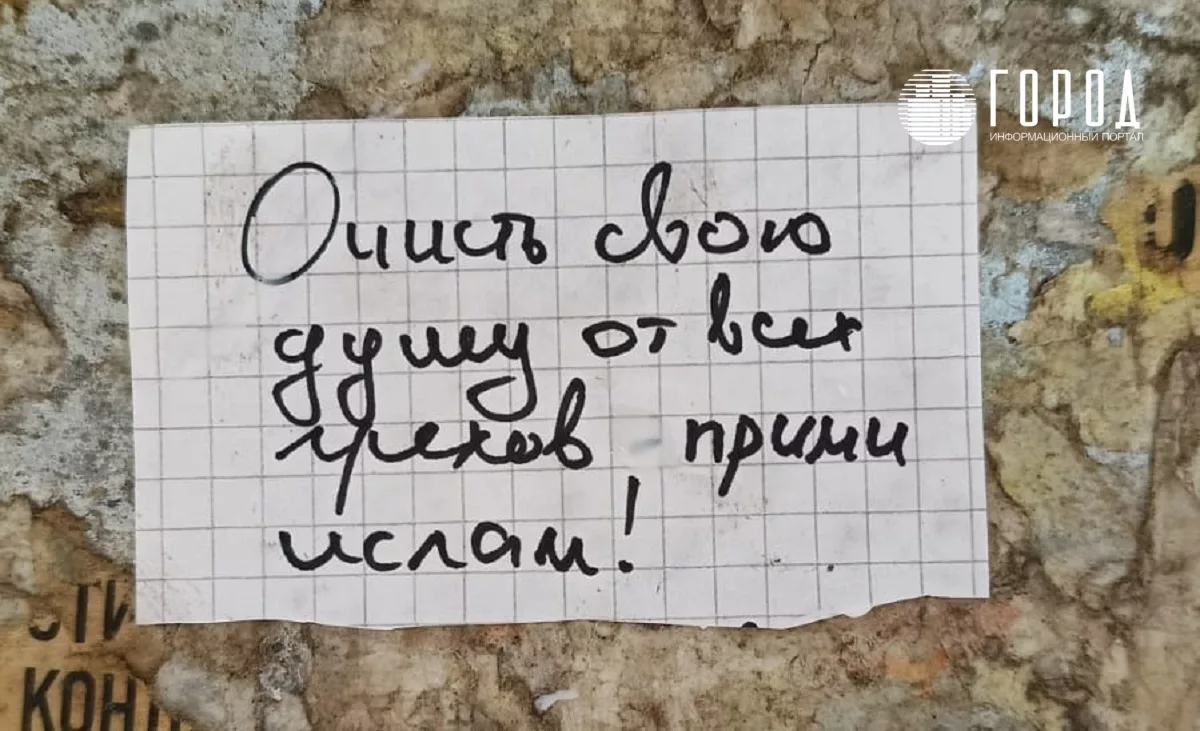 ГОРОД
ИНФОРМАЦИОННЫЙ ПОРТАЛ
Очисть свою
душу от всех
грехов прими
ислам!